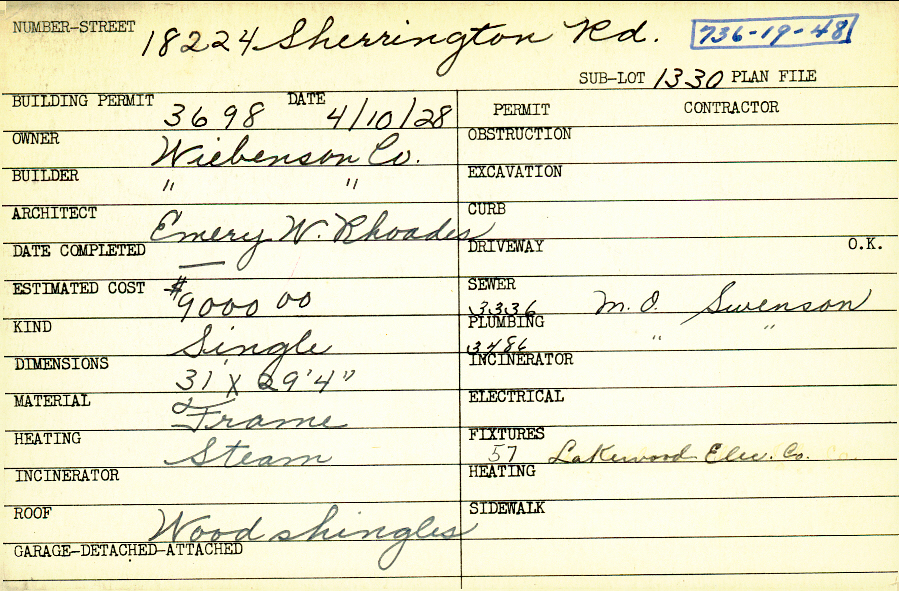 NUMBER-STREET 18224 Sherrington Rd. 736-19-48
SUB-LOT 1330 PLAN FILE
BUILDING PERMIT 3698 DATE 4/10/28
OWNER Wiebenson Co.
BUILDER " "
ARCHITECT Emery W. Rhoades
DATE COMPLETED —
ESTIMATED COST $9000 00
KIND Single
DIMENSIONS 31' X 29'4"
MATERIAL Frame
HEATING Steam
INCINERATOR
ROOF Wood shingles
GARAGE-DETACHED-ATTACHED
PERMIT CONTRACTOR
OBSTRUCTION
EXCAVATION
CURB
DRIVEWAY O.K.
SEWER 3336 M.O. Swenson
PLUMBING 3486 " "
INCINERATOR
ELECTRICAL
FIXTURES 57 Lakewood Elec. Co.
HEATING
SIDEWALK